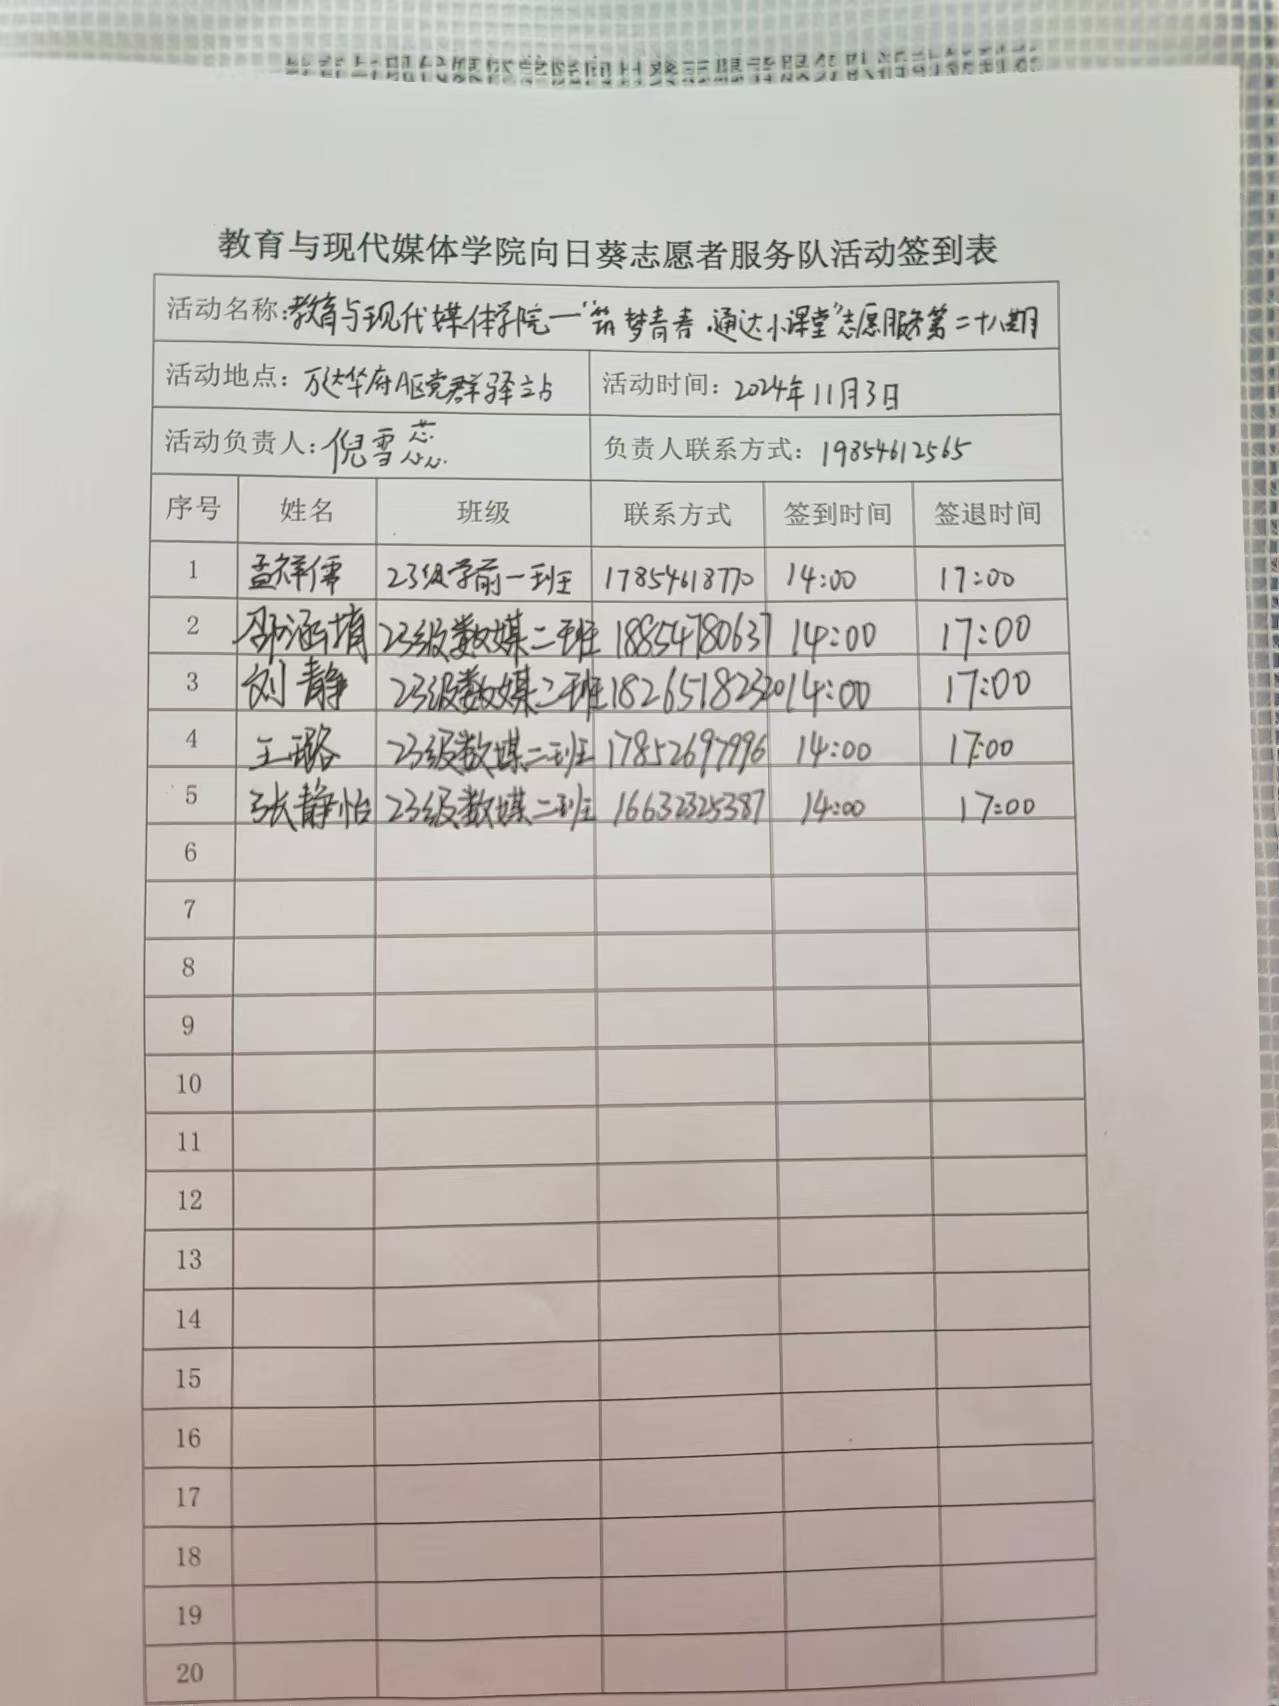 教育与现代媒体学院向日葵志愿者服务队活动签到表
活动名称:教育与现代媒体学院—“筑梦青春·通达小课堂”志愿服务第二十八期
活动地点: 万达华府A区党群驿站 活动时间: 2024年11月3日
活动负责人: 倪雪蕊 负责人联系方式: 19854612565
序号 姓名 班级 联系方式 签到时间 签退时间
1 孟祥儒 23级学前一班 17854618770 14:00 17:00
2 邵涵堉 23级数媒二班 18854780637 14:00 17:00
3 刘静 23级数媒二班 18265182320 14:00 17:00
4 王璐 23级数媒二班 17852697996 14:00 17:00
5 张静怡 23级数媒二班 16632325387 14:00 17:00
6
7
8
9
10
11
12
13
14
15
16
17
18
19
20